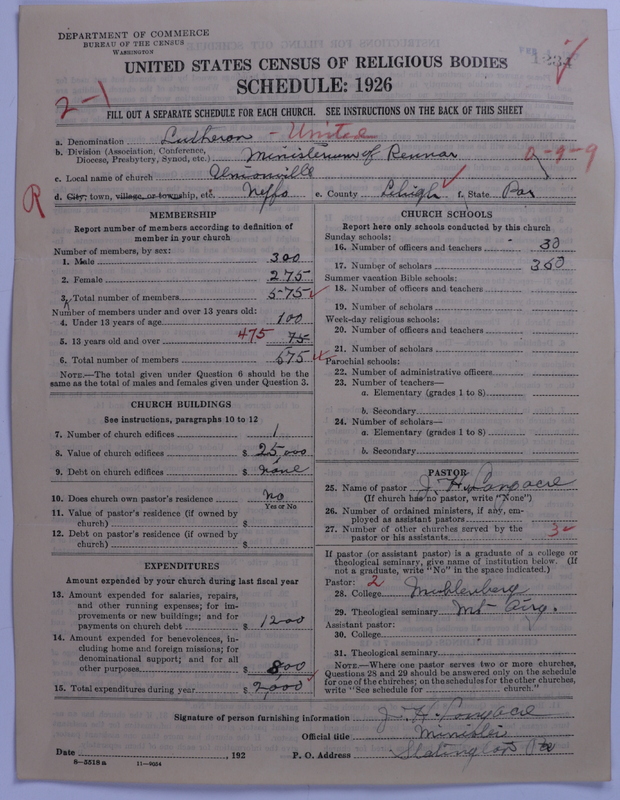 DEPARTMENT OF COMMERCE
BUREAU OF THE CENSUS
WASHINGTON
1234
UNITED STATES CENSUS OF RELIGIOUS BODIES
SCHEDULE: 1926
2-1
FILL OUT A SEPARATE SCHEDULE FOR EACH CHURCH. SEE INSTRUCTIONS ON THE BACK OF THIS SHEET
a. Denomination Lutheran - United
b. Division (Association, Conference, Diocese, Presbytery, Synod, etc.) Ministerium of Pennar
0-9-9
c. Local name of church Unionville
R
d. City, town, village, or township, etc. Neffs e. County Lehigh f. State Pa
MEMBERSHIP
Report number of members according to definition of member in your church
Number of members, by sex:
1. Male 300
2. Female 275
3. Total number of members 575
Number of members under and over 13 years old:
4. Under 13 years of age 100
5. 13 years old and over 475 75
6. Total number of members 575
NOTE.—The total given under Question 6 should be the same as the total of males and females given under Question 3.
CHURCH BUILDINGS
See instructions, paragraphs 10 to 12
7. Number of church edifices 1
8. Value of church edifices $ 25,000
9. Debt on church edifices $ none
10. Does church own pastor's residence No
Yes or No
11. Value of pastor's residence (if owned by church) $
12. Debt on pastor's residence (if owned by church) $
EXPENDITURES
Amount expended by your church during last fiscal year
13. Amount expended for salaries, repairs, and other running expenses; for improvements or new buildings; and for payments on church debt $ 1200
14. Amount expended for benevolences, including home and foreign missions; for denominational support; and for all other purposes $ 800
15. Total expenditures during year $ 2,000
CHURCH SCHOOLS
Report here only schools conducted by this church
Sunday schools:
16. Number of officers and teachers 30
17. Number of scholars 350
Summer vacation Bible schools:
18. Number of officers and teachers
19. Number of scholars
Week-day religious schools:
20. Number of officers and teachers
21. Number of scholars
Parochial schools:
22. Number of administrative officers
23. Number of teachers—
a. Elementary (grades 1 to 8)
b. Secondary
24. Number of scholars—
a. Elementary (grades 1 to 8)
b. Secondary
PASTOR
25. Name of pastor J. H. Longacre
(If church has no pastor, write "None")
26. Number of ordained ministers, if any, employed as assistant pastors
27. Number of other churches served by the pastor or his assistants 3
If pastor (or assistant pastor) is a graduate of a college or theological seminary, give name of institution below. (If not a graduate, write "No" in the space indicated.)
Pastor: 2
28. College Muhlenberg
29. Theological seminary Mt- Airy.
Assistant pastor:
30. College
31. Theological seminary
NOTE.—Where one pastor serves two or more churches, Questions 28 and 29 should be answered only on the schedule for one of the churches; on the schedules for the other churches, write "See schedule for church."
Signature of person furnishing information J. H. Longacre
Official title Minister
Date , 192 P. O. Address Slatington Pa
8-5518 a 11-9034